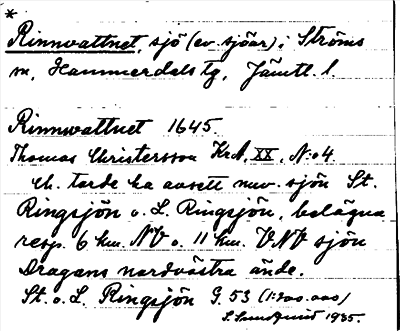 *
Rinnvattnet, sjö (ev. sjöar) i Ströms
sn, Hammerdals tg, Jämtl. l.
Rinnvattnet 1645.
Thomas Christersson KrA, XX, N:o 4
Ch. torde ha avsett nuv. sjön St.
Ringsjön o. L. Ringsjön, belägna
resp. 6 km. NV o. 11 km. VNV sjön
Dragans nordvästra ände.
St. o. L. Ringsjön G. 53 (1:200.000)
1935.